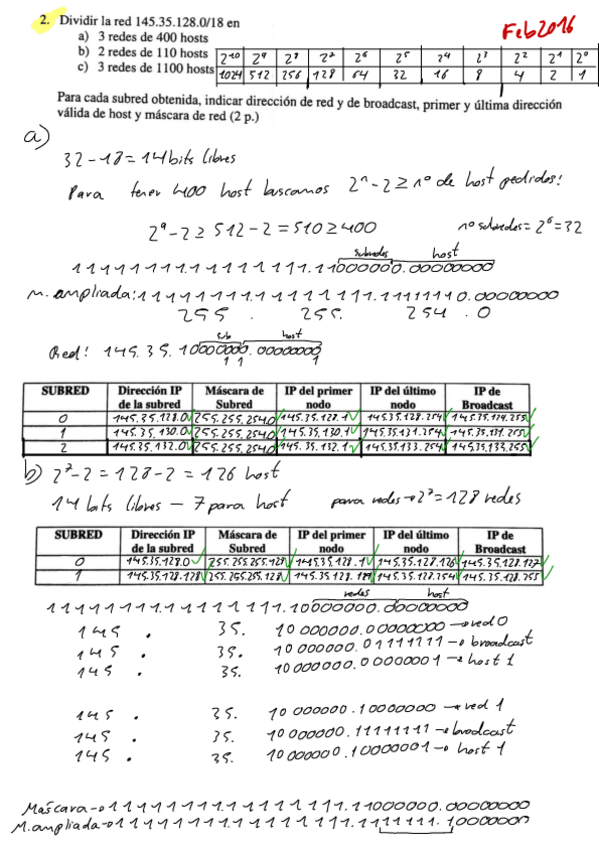 2. Dividir la red 145.35.128.0/18 en
Feb2016
a) 3 redes de 400 hosts
b) 2 redes de 110 hosts
c) 3 redes de 1100 hosts
2^10 2^9 2^8 2^7 2^6 2^5 2^4 2^3 2^2 2^1 2^0
1024 512 256 128 64 32 16 8 4 2 1
Para cada subred obtenida, indicar dirección de red y de broadcast, primer y última dirección
válida de host y máscara de red (2 p.)
a)
32-18=14 bits libres
Para tener 400 host buscamos 2^n-2≥nº de host pedidos!
2^9-2≥512-2=510≥400 nº subredes=2^6=32
subredes host
11111111.11111111.11000000.00000000
M. ampliada: 11111111.11111111.11111110.00000000
255 . 255. 254 .0
sub host
Red! 145.35.10000000.00000000
1 1 1
SUBRED Dirección IP de la subred Máscara de Subred IP del primer nodo IP del último nodo IP de Broadcast
0 145.35.128.0 255.255.254.0 145.35.128.1 145.35.129.254 145.35.129.255
1 145.35.130.0 255.255.254.0 145.35.130.1 145.35.131.254 145.35.131.255
2 145.35.132.0 255.255.254.0 145.35.132.1 145.35.133.254 145.35.133.255
b) 2^7-2=128-2=126 host
14 bits libres — 7 para host para redes→2^7=128 redes
SUBRED Dirección IP de la subred Máscara de Subred IP del primer nodo IP del último nodo IP de Broadcast
0 145.35.128.0 255.255.255.128 145.35.128.1 145.35.128.126 145.35.128.127
1 145.35.128.128 255.255.255.128 145.35.128.129 145.35.128.254 145.35.128.255
redes host
11111111.11111111.10000000.00000000
145 . 35. 10000000.00000000→red 0
145 . 35. 10000000.01111111→broadcast
145 . 35. 10000000.00000001→host 1
145 . 35. 10000000.10000000→red 1
145 . 35. 10000000.11111111→broadcast
145 . 35. 10000000.10000001→host 1
Máscara→11111111.11111111.11000000.00000000
M.ampliada→11111111.11111111.11111111.10000000